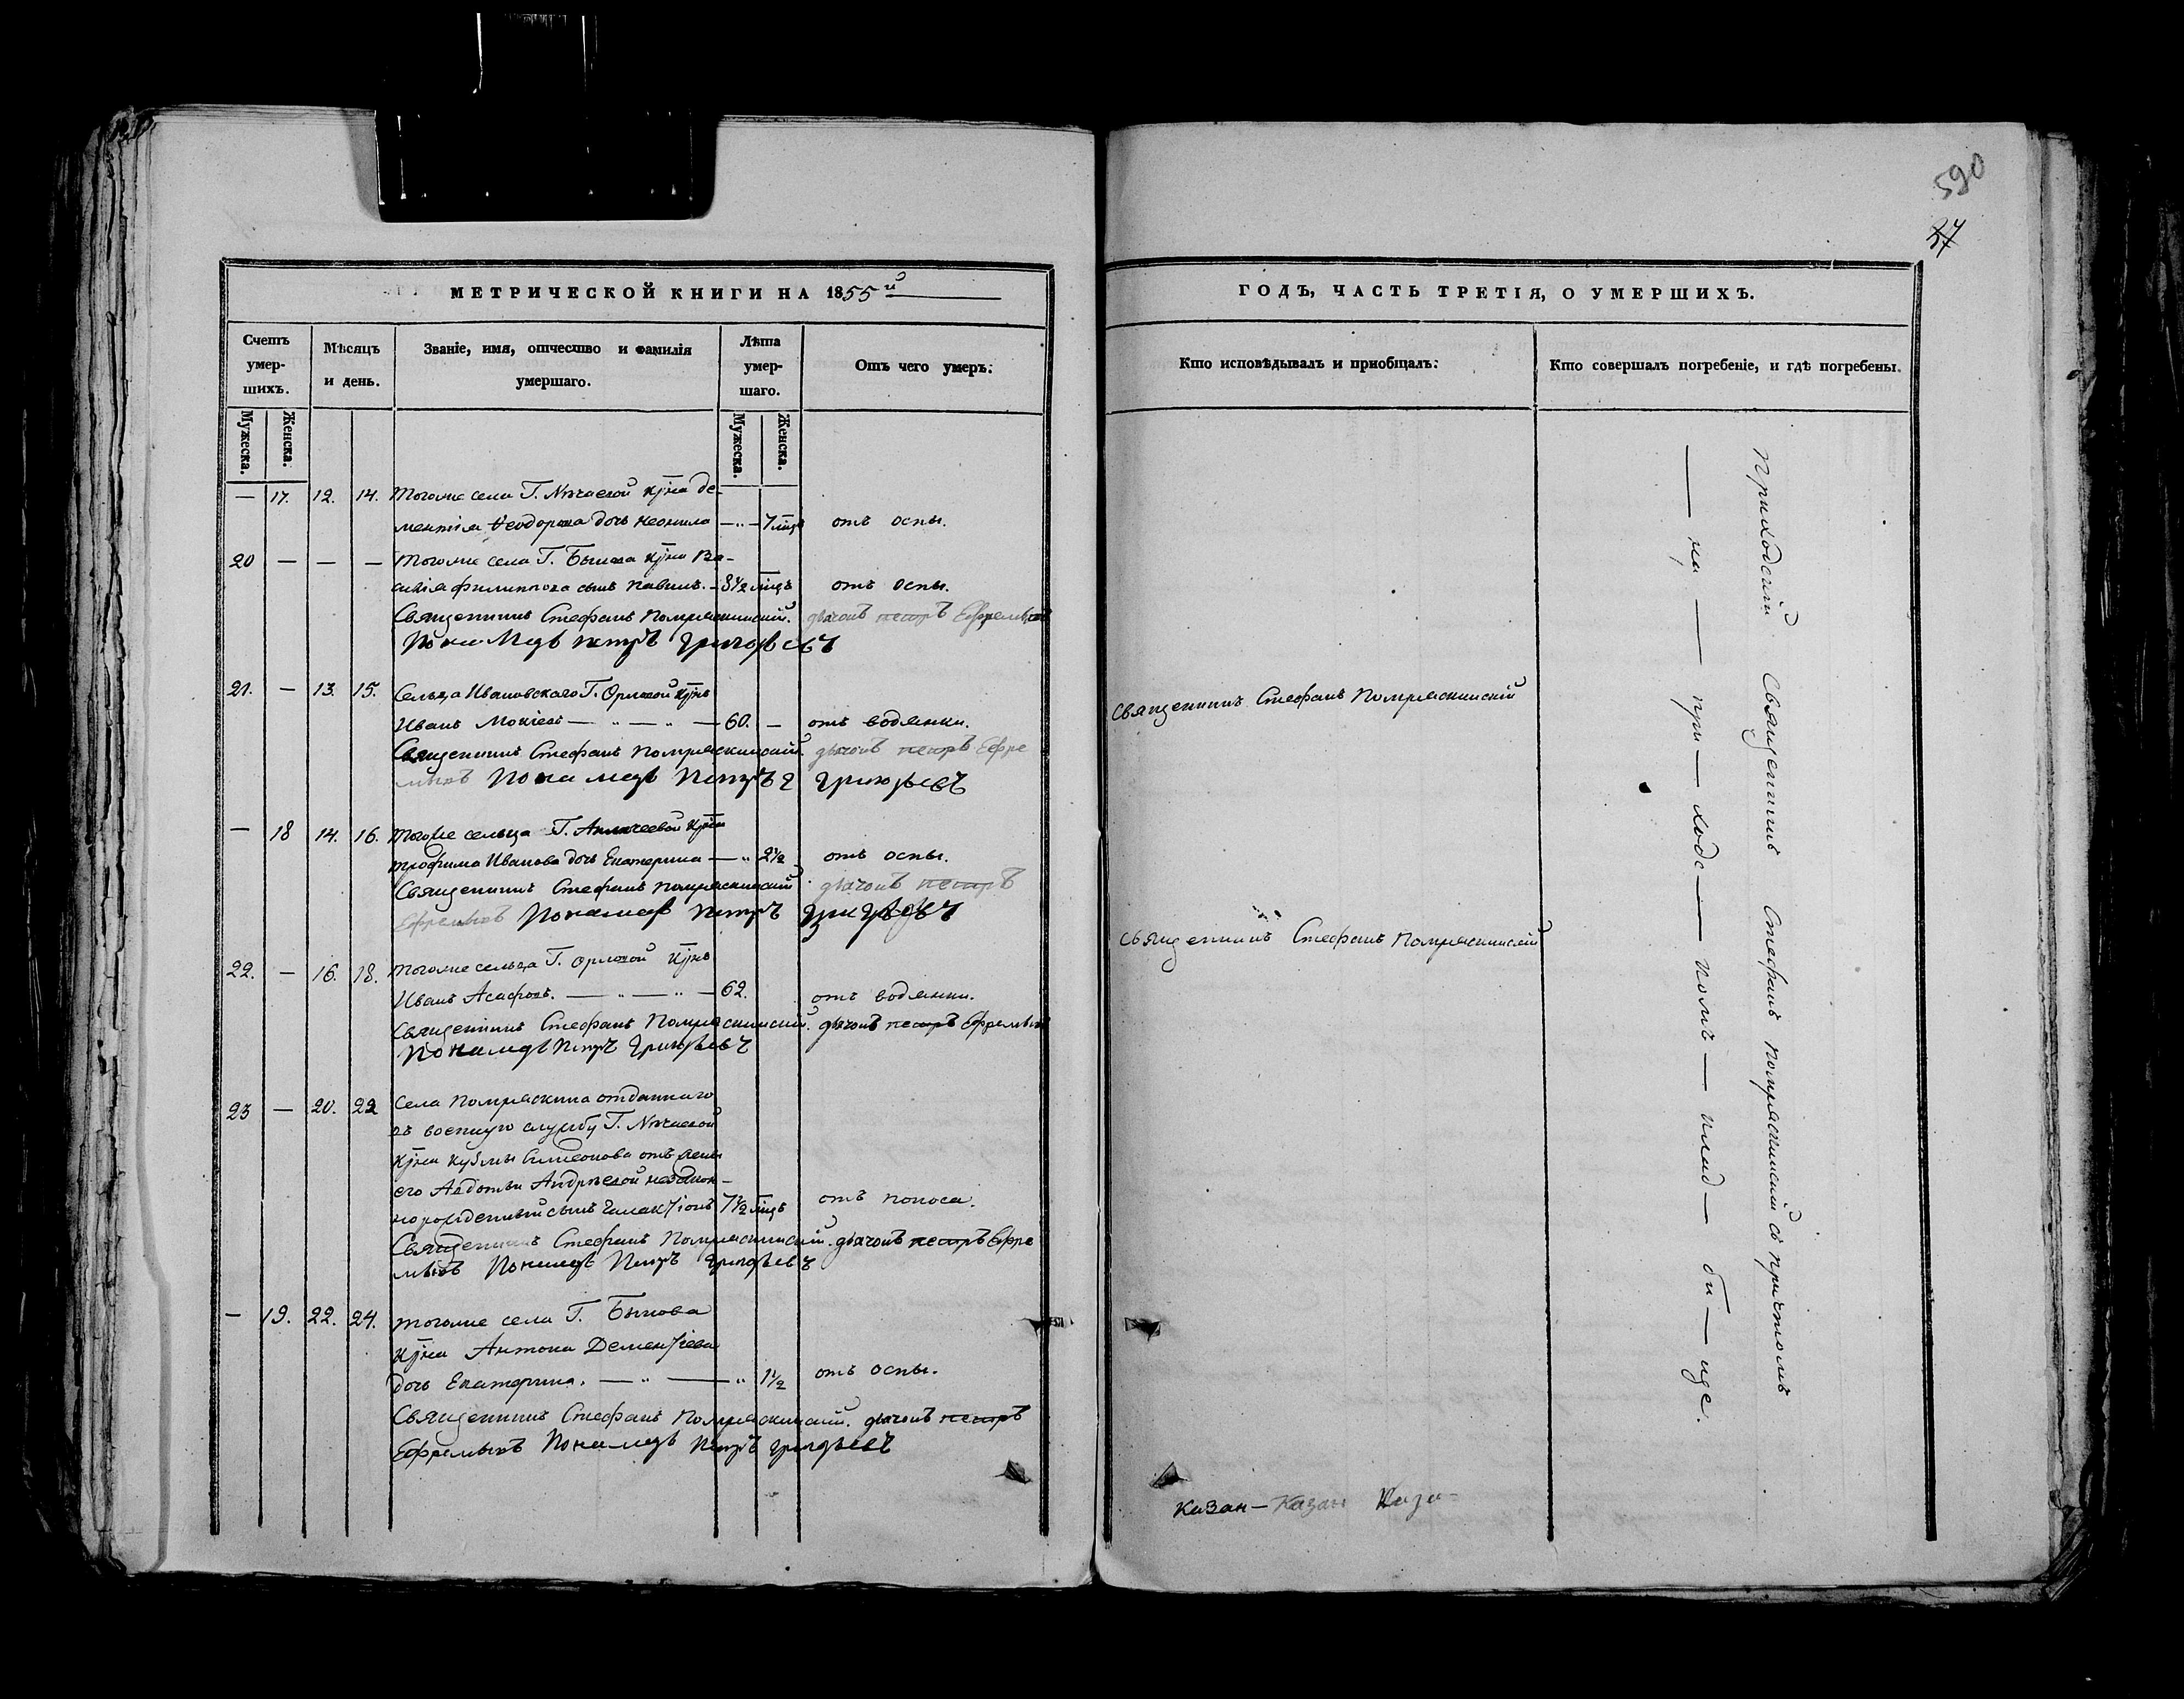 590
37
МЕТРИЧЕСКОЙ КНИГИ НА 1855й
ГОДЪ, ЧАСТЬ ТРЕТІЯ, О УМЕРШИХЪ.
Счетъ умер-шихъ.
Мѣсяцъ и день.
Званіе, имя, отчество и фамилія умершаго.
Лѣта умер-шаго.
Отъ чего умеръ.
Кто исповѣдывалъ и пріобщалъ.
Кто совершалъ погребеніе, и гдѣ погребены.
Мужеска. Женска. Мужеска. Женска.
— 17. 12. 14. тогоже села Г. кр҃на Де-
ментія Ѳеодорова дочь Неонила — „ — 7 мцъ отъ оспы.
20 — — — тогоже села Г. Быкова кр҃на Ва-
силія Филиппова сынъ Павелъ. — 3½ мцъ отъ оспы.
Священникъ Стефанъ Помряскинскій. дьячокъ петръ Ефремовъ
Пономарь петръ Григорьевъ
21. — 13. 15. Сельца Ивановскаго Г. Орловой кр҃нъ
Иванъ Мокіевъ — „ — „ — 60. — отъ водянки. Священникъ Стефанъ Помряскинскій
Священникъ Стефанъ Помряскинскій. дьячокъ петръ Ефре
мовъ Пономарь Петръ Григорьевъ
— 18 14. 16. тогоже сельца Г. кр҃на
трофима Иванова дочь Екатерина — „ 2½ отъ оспы.
Священникъ Стефанъ Помряскинскій. дьячокъ петръ
Ефремовъ Пономарь петръ Григорьевъ
22. — 16. 18. тогоже сельца Г. Орловой кр҃нъ Священникъ Стефанъ Помряскинскій
Иванъ Асафовъ. — „ — „ — 62. отъ водянки.
Священникъ Стефанъ Помряскинскій. дьячокъ петръ Ефремовъ
Пономарь Петръ Григорьевъ
23 — 20. 22 Села Помряскина отданнаго
въ военную службу Г.
кр҃на Кузмы Симеонова отъ жены
его Авдотьи Андреевой незакон-
норожденный сынъ Галактіонъ 7½ мцъ отъ поноса.
Священникъ Стефанъ Помряскинскій. дьячокъ петръ Ефре
мовъ Пономарь Петръ Григорьевъ
— 19. 22. 24. тогоже села Г. Быкова
кр҃на Антона Дементіева
дочь Екатерина. — „ — „ 1½ отъ оспы.
Священникъ Стефанъ Помряскинскій. дьячокъ петръ
Ефремовъ Пономарь петръ Григорьевъ
Приходскій Священникъ Стефанъ Помряскинскій съ причтомъ
— на — при — ходс — комъ — клад — би — ще.
Казан — Казан Каза-